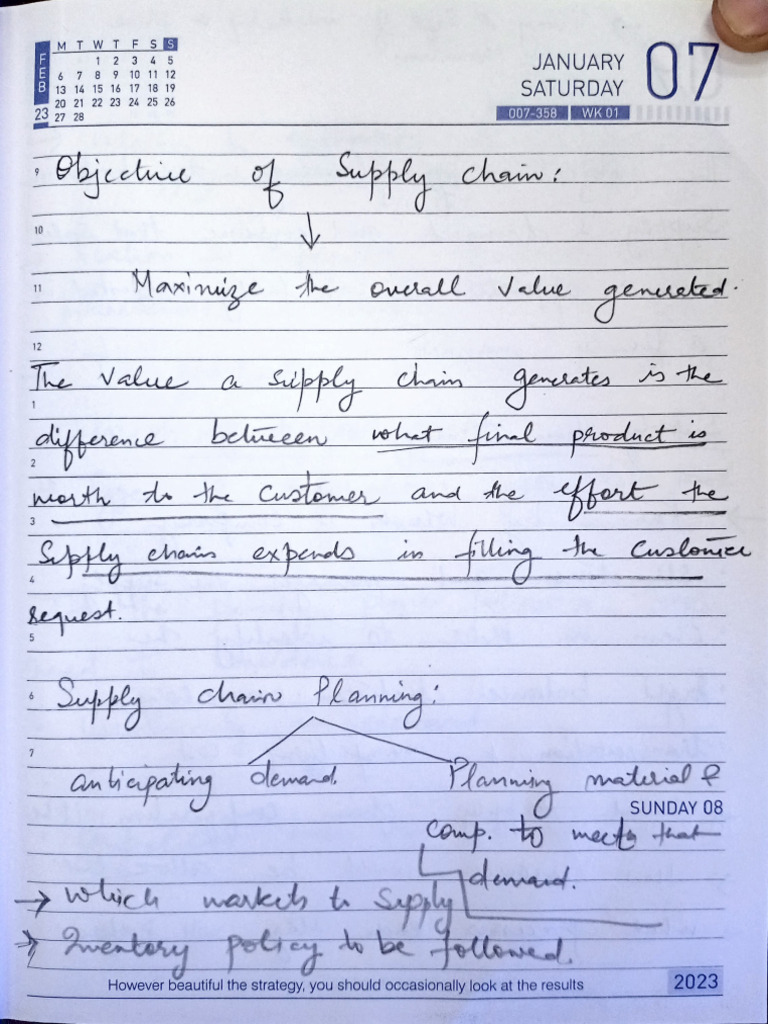 FEB 23
M T W T F S S
1 2 3 4 5
6 7 8 9 10 11 12
13 14 15 16 17 18 19
20 21 22 23 24 25 26
27 28
JANUARY
SATURDAY
07
007-358 WK 01
9 Objective of Supply chain:
10
11 Maximize the overall value generated.
12
The value a supply chain generates is the
1
difference between what final product is
2
worth to the customer and the effort the
3
Supply chain expends in filling the customer
4
request.
5
6 Supply chain Planning:
7
anticipating demand. Planning material &
SUNDAY 08
comp. to meet that
demand.
→ Which markets to Supply
→ Inventory policy to be followed.
However beautiful the strategy, you should occasionally look at the results
2023